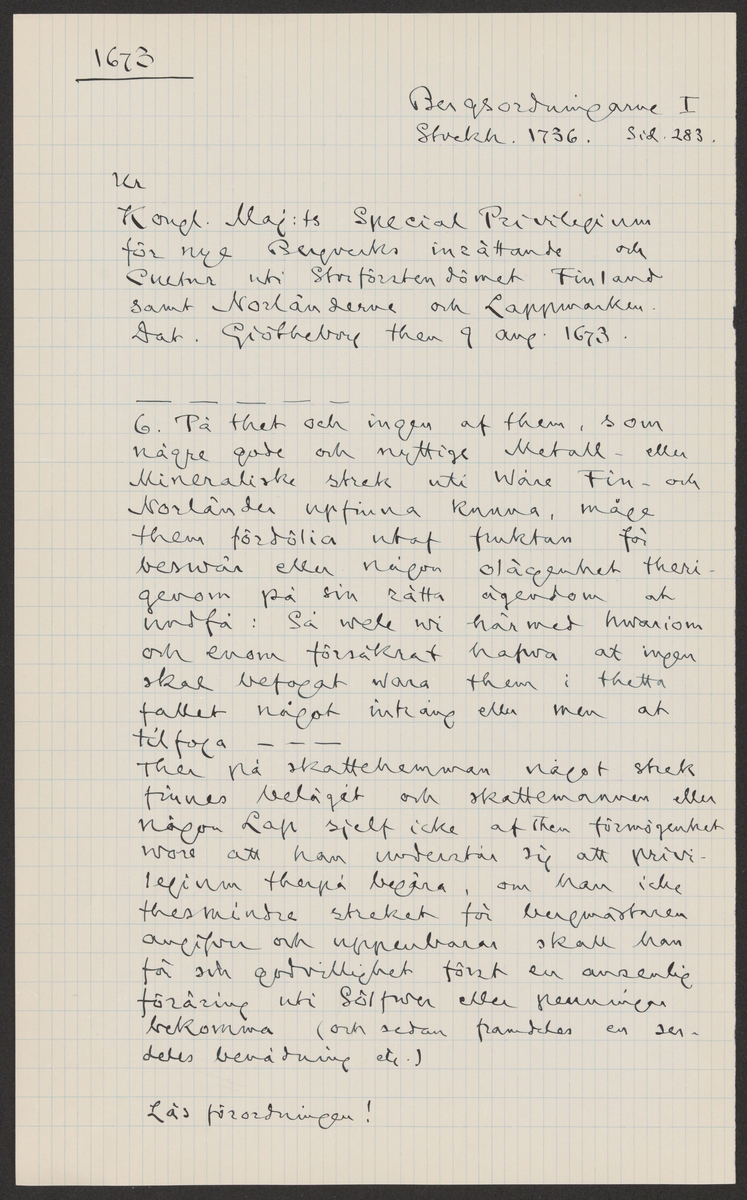 1673
Bergsordningarne I
Stockh. 1736. Sid. 283.
Ur
Kongl. Maj:ts Special Privilegium
för nye Bergverks inrättande och
Cultur uti Storförstendömet Finland
samt Norländerne och Lappmarken.
Dat. Giötheborg then 9 aug. 1673.
— — — — —
6. På thet och ingen af them, som
någre gode och nyttige Metall- eller
Mineraliske strek uti Wåre Fin- och
Norländer upfinna kunna, måge
them fördölia utaf fruktan för
beswär eller någon olägenhet theri-
genom på sin rätta ägendom at
undfå: Så wele wi härmed hwariom
och enom försäkrat hafwa at ingen
skal befogat wara them i thetta
fallet något inträng eller men at
tilfoga — — —
Ther på skattehemman något strek
finnes belägét och skattemannen eller
någon Lap sjelf icke af then förmögenhet
wore att han understår sig att privi-
legium therpå begära, om han icke
thesmindre streket för bergmästaren
angifver och uppenbarar skall han
för sin godvillighet först en ansenlig
föräring uti Sölfwer eller penningar
bekomma (och sedan framdeles en ser-
deles benådning etc.)
Läs förordningen!